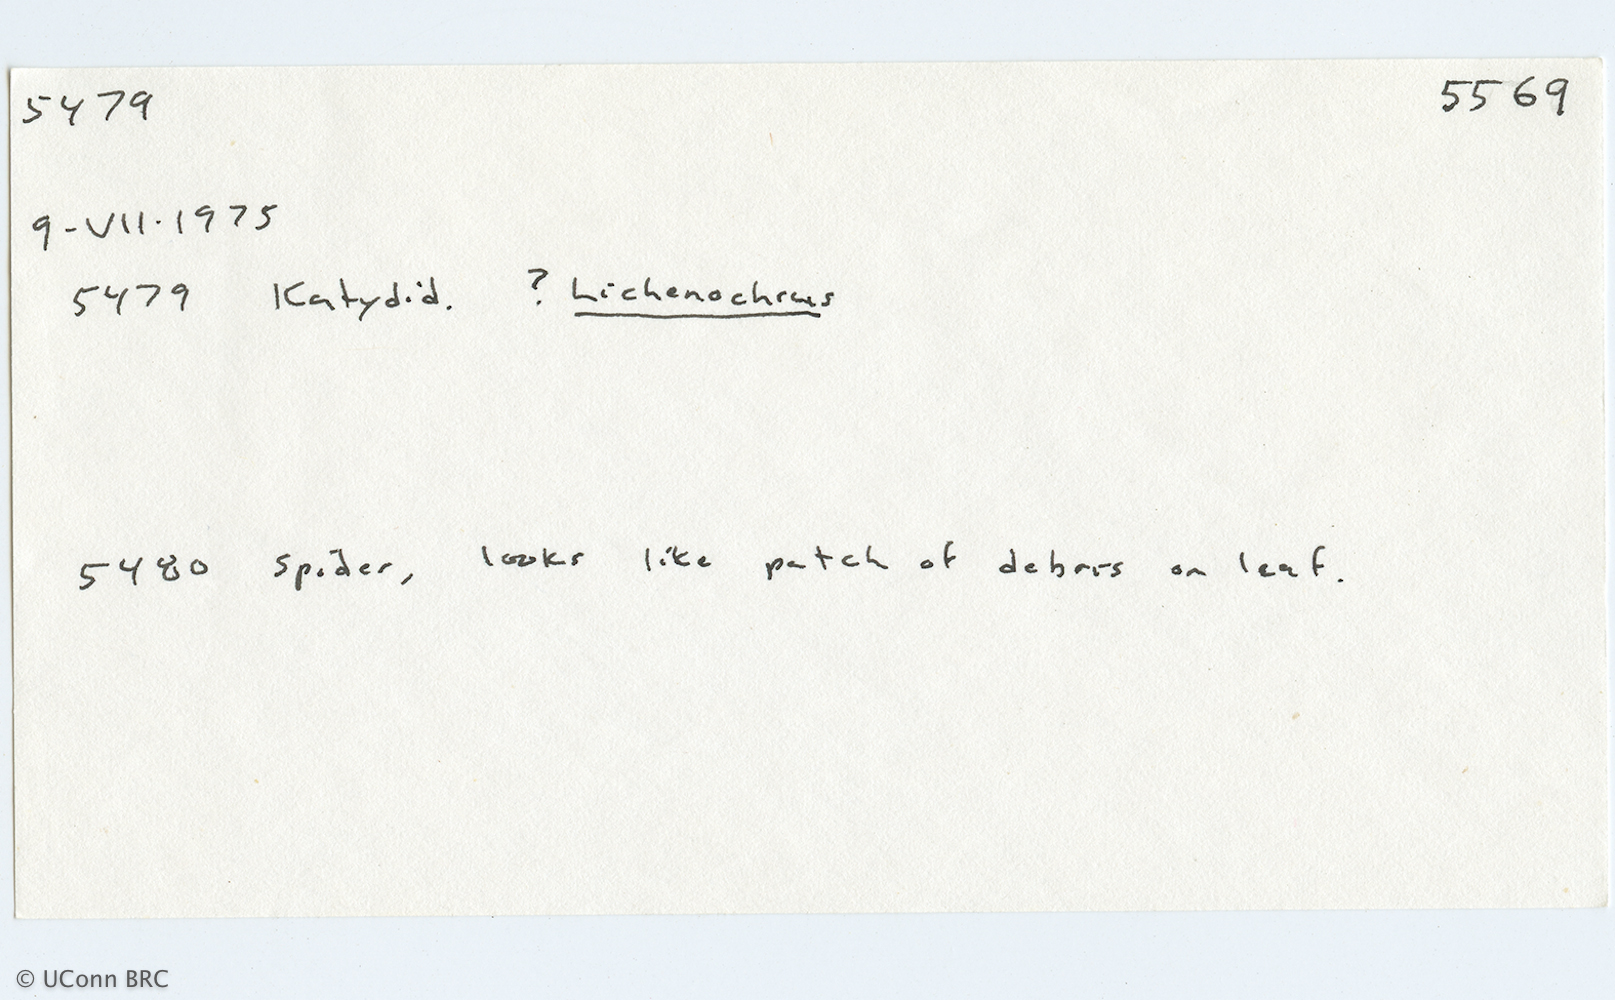 5479 5569
9-VII-1975
5479 Katydid. ? Lichenochrus
5480 Spider, looks like patch of debris on leaf.
© UConn BRC